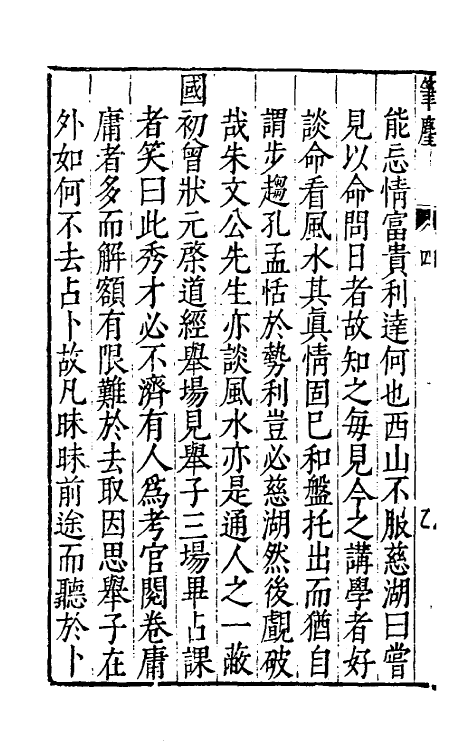 筆麈
四
能忘情富貴利達何也西山不服慈湖曰嘗
見以命問日者故知之每見今之講學者好
談命看風水其眞情固已和盤托出而猶自
謂步趨孔孟恬於勢利豈必慈湖然後覷破
哉朱文公先生亦談風水亦是通人之一蔽
國初曾狀元棨道經舉場見舉子三場畢占課
者笑曰此秀才必不濟有人爲考官閱卷庸
庸者多而解額有限難於去取因思舉子在
外如何不去占卜故凡昧昧前途而聽於卜